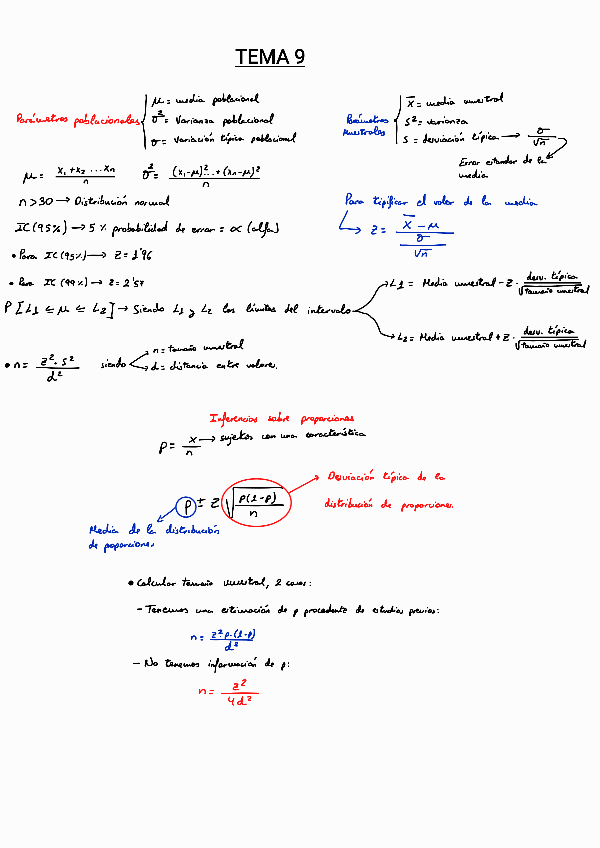 TEMA 9
Parámetros poblacionales
μ = media poblacional
σ² = Varianza poblacional
σ = Variación típica poblacional
Parámetros muestrales
x̄ = media muestral
s² = varianza
s = desviación típica → σ/√n
Error estandar de la media
μ = (x₁ + x₂ ... xₙ)/n   σ² = ((x₁-μ)² ... + (xₙ-μ)²)/n
n > 30 → Distribución normal
Para tipificar el valor de la media
→ z = (x̄ - μ)/(σ/√n)
IC (95%) → 5 % probabilidad de error = α (alfa)
• Para IC (95%) → z = 1'96
• Para IC (99%) → z = 2'57
P [L1 ≤ μ ≤ L2] → Siendo L1 y L2 los límites del intervalo
L1 = Media muestral - z · desv. típica/√tamaño muestral
L2 = Media muestral + z · desv. típica/√tamaño muestral
• n = (z² · s²)/d²   siendo
n = tamaño muestral
d = distancia entre valores.
Inferencias sobre proporciones
p = x/n → sujetos con una característica
p ± z √(p(1-p)/n)
Desviación típica de la
distribución de proporciones.
Media de la distribución
de poporciones
• Calcular tamaño muestral, 2 casos:
- Tenemos una estimación de p procedente de estudios previos:
n = (z² p · (1-p))/d²
- No tenemos información de p:
n = z²/4d²